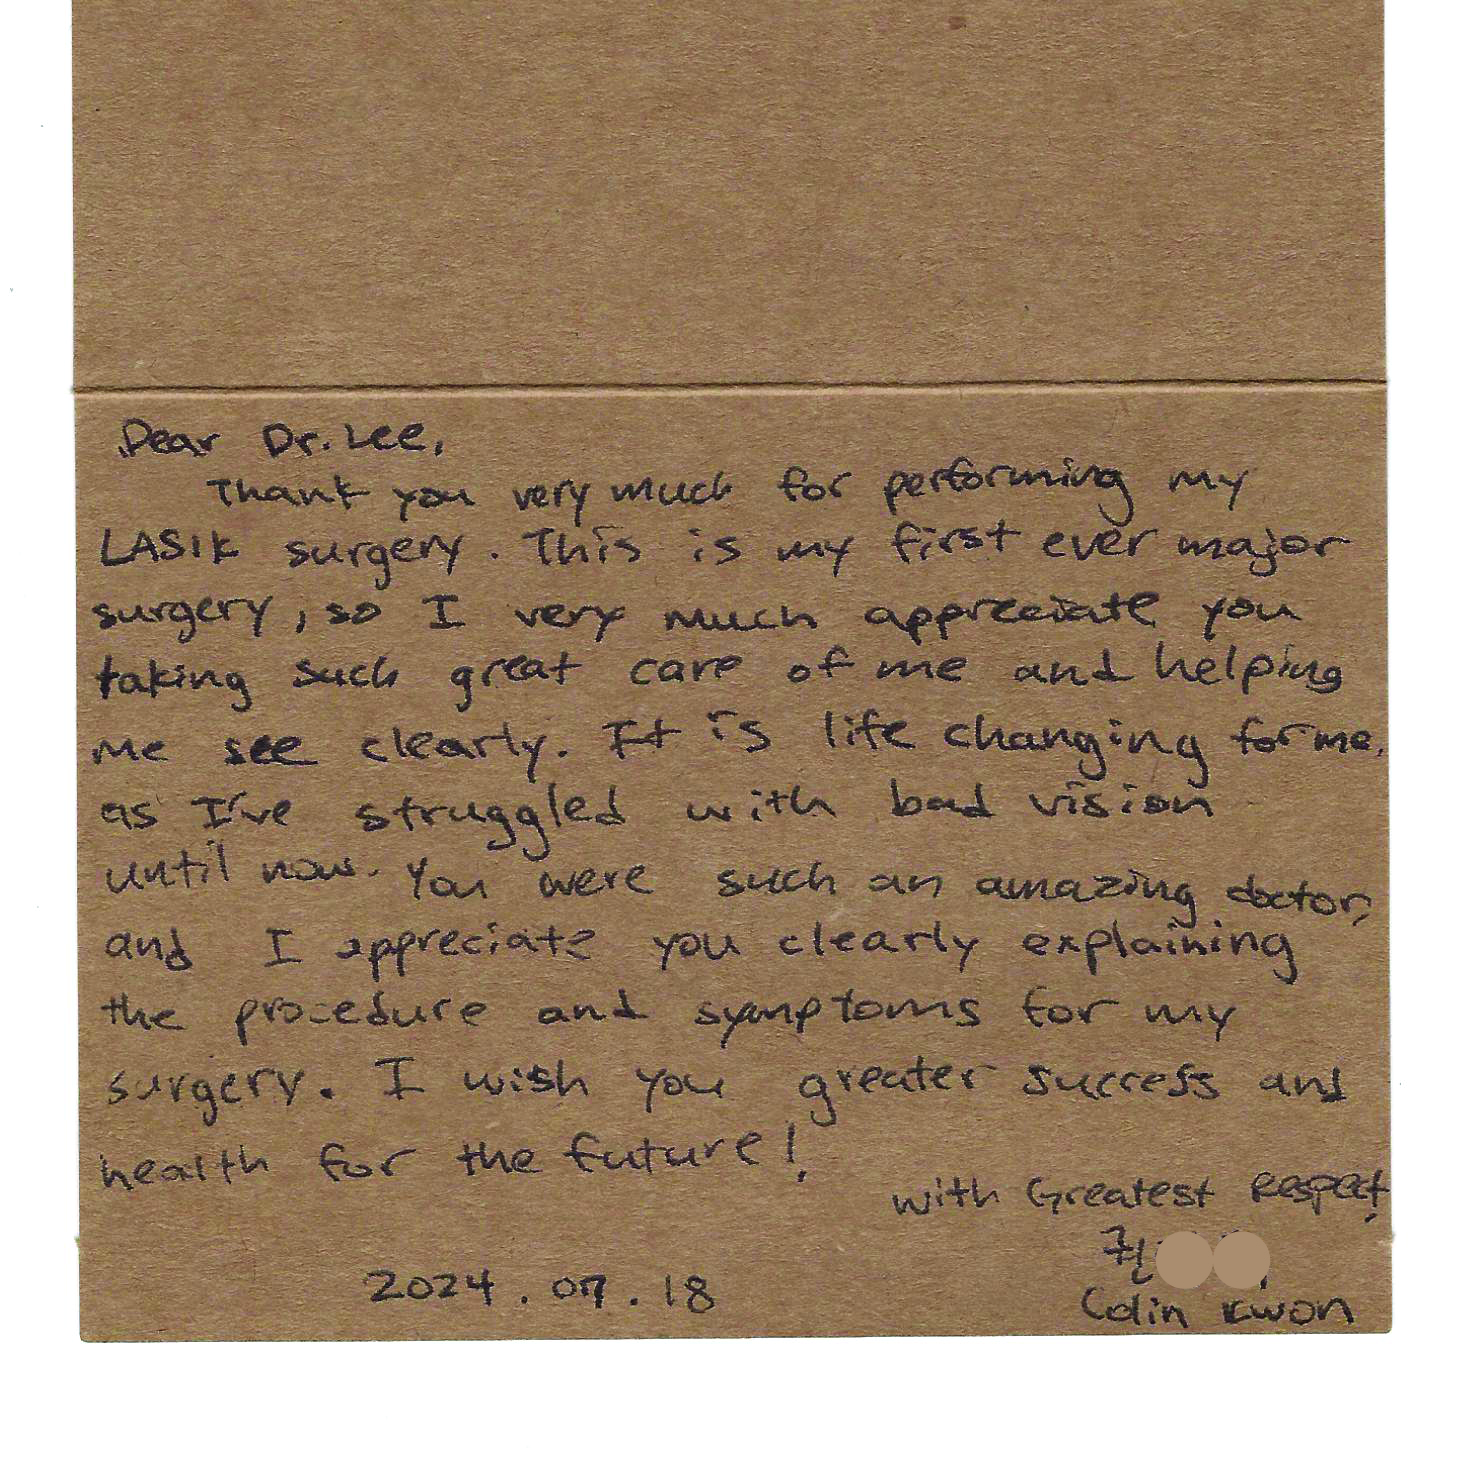 Dear Dr. Lee,
Thank you very much for performing my
LASIK surgery. This is my first ever major
surgery, so I very much appreciate you
taking such great care of me and helping
me see clearly. It is life changing for me,
as I've struggled with bad vision
until now. You were such an amazing doctor,
and I appreciate you clearly explaining
the procedure and symptoms for my
surgery. I wish you greater success and
health for the future!
With Greatest Respect,
Colin Kwon
2024.07.18